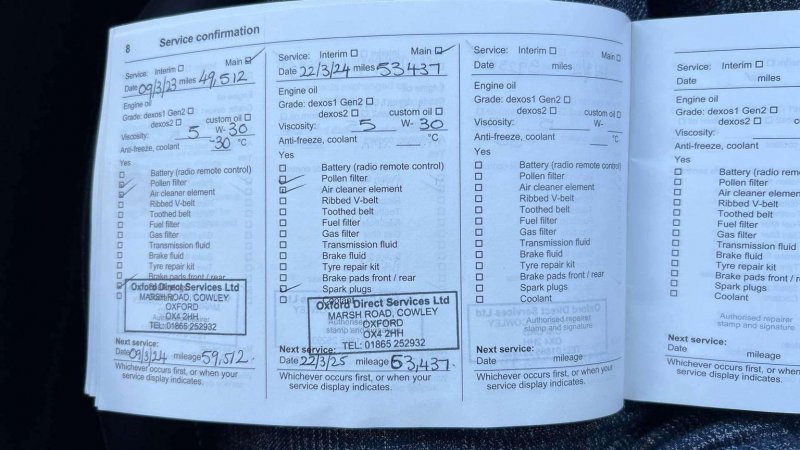 8 Service confirmation
Service: Interim ☐ Main ☑
Date 09/3/23 miles 49,512
Engine oil
Grade: dexos1 Gen2 ☐
dexos2 ☐ custom oil ☐
Viscosity: 5 W- 30
Anti-freeze, coolant -30 °C
Yes
☐ Battery (radio remote control)
☑ Pollen filter
☑ Air cleaner element
☐ Ribbed V-belt
☐ Toothed belt
☐ Fuel filter
☐ Gas filter
☐ Transmission fluid
☐ Brake fluid
☐ Tyre repair kit
Brake pads front / rear
Oxford Direct Services Ltd
MARSH ROAD, COWLEY
OXFORD
OX4 2HH
TEL: 01865 252932
Next service:
Date 09/3/24 mileage 59,512.
Whichever occurs first, or when your
service display indicates.
Service: Interim ☐ Main ☑
Date 22/3/24 miles 53437
Engine oil
Grade: dexos1 Gen2 ☐
dexos2 ☐ custom oil ☐
Viscosity: 5 W- 30
Anti-freeze, coolant °C
Yes
☐ Battery (radio remote control)
☑ Pollen filter
☑ Air cleaner element
☐ Ribbed V-belt
☐ Toothed belt
☐ Fuel filter
☐ Gas filter
☐ Transmission fluid
☐ Brake fluid
☐ Tyre repair kit
☐ Brake pads front / rear
☑ Spark plugs
Coolant
Oxford Direct Services Ltd
MARSH ROAD, COWLEY
OXFORD
OX4 2HH
TEL: 01865 252932
Next service:
Date 22/3/25 mileage 63,437.
Whichever occurs first, or when your
service display indicates.
Service: Interim ☐ Main ☐
Date miles
Engine oil
Grade: dexos1 Gen2 ☐
dexos2 ☐ custom oil ☐
Viscosity: W-
Anti-freeze, coolant °C
Yes
☐ Battery (radio remote control)
☐ Pollen filter
☐ Air cleaner element
☐ Ribbed V-belt
☐ Toothed belt
☐ Fuel filter
☐ Gas filter
☐ Transmission fluid
☐ Brake fluid
☐ Tyre repair kit
☐ Brake pads front / rear
☐ Spark plugs
☐ Coolant
Authorised repairer
stamp and signature
Next service:
Date mileage
Whichever occurs first, or when your
service display indicates.
Service: Interim ☐
Date miles
Engine oil
Grade: dexos1 Gen2 ☐
dexos2 ☐
Viscosity:
Anti-freeze, coolant
Yes
☐ Battery (radio
☐ Pollen filter
☐ Air cleaner element
☐ Ribbed V-belt
☐ Toothed belt
☐ Fuel filter
☐ Gas filter
☐ Transmission fluid
☐ Brake fluid
☐ Tyre repair kit
☐ Brake pads front
☐ Spark plugs
☐ Coolant
Authorised
stamp and
Next service:
Date
Whichever occurs first, or
service display indicates.